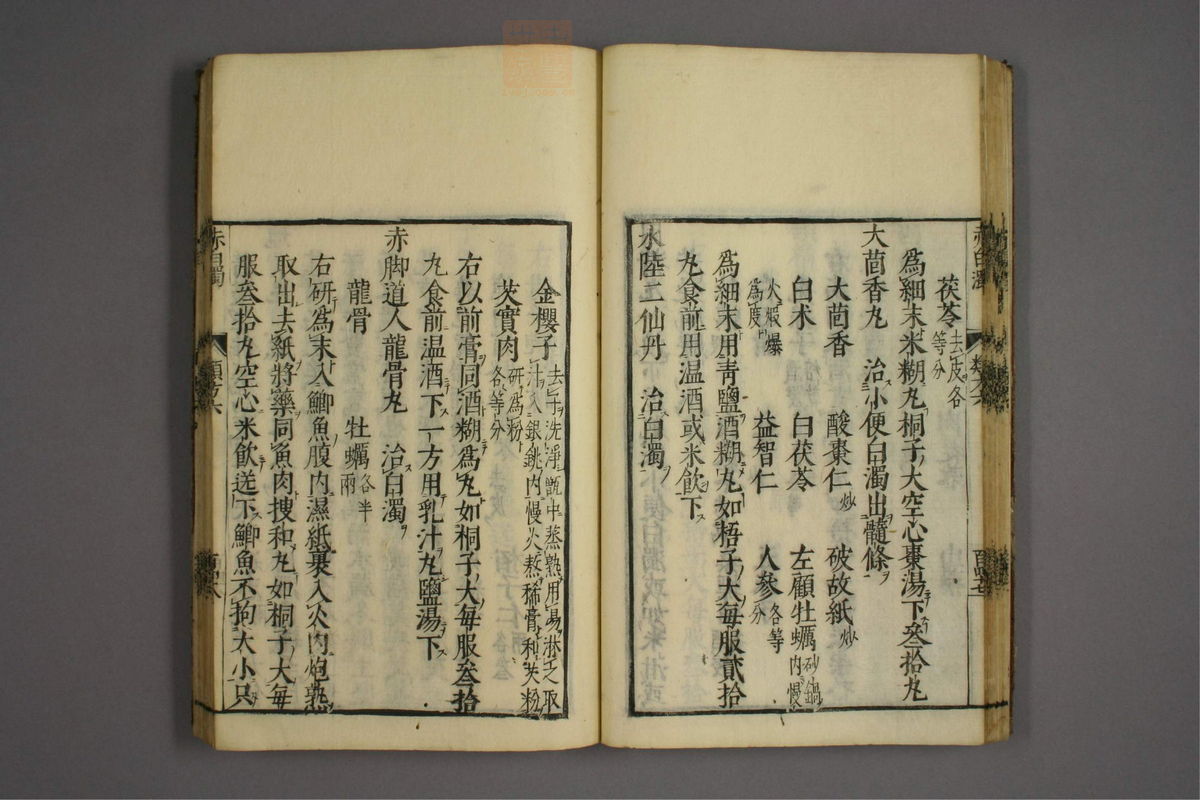 茯苓去皮各等分
為細末米糊丸桐子大空心棗湯下叄拾丸
大茴香丸 治小便白濁出髓條
大茴香 酸棗仁炒 破故紙炒
白术 白茯苓 左顧牡蠣砂鍋内慢
火煆爆為度 益智仁 人參各等分
為細末用靑鹽酒糊丸如梧子大每服貳拾
丸食前用温酒或米飮下
水陸二仙丹 治白濁
金櫻子去子洗淨甑中蒸熟用湯淋之取汁入銀銚内慢火熬稀膏和芡粉
芡實肉研為粉各等分
右以前膏同酒糊為丸如桐子大每服叄拾
丸食前温酒下一方用乳汁丸鹽湯下
赤脚道人龍骨丸 治白濁
龍骨 牡蠣各半兩
右研為末入鯽魚腹内濕紙裹入火内炮熟
取出去紙將藥同魚肉搜和丸如桐子大每
服叄拾丸空心米飮送下鯽魚不拘大小只
赤白濁